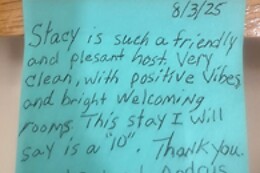 8/3/25
Stacy is such a friendly
and plesant host. Very
clean, with positive vibes
and bright welcoming
rooms. This stay I will
say is a "10". Thank you.